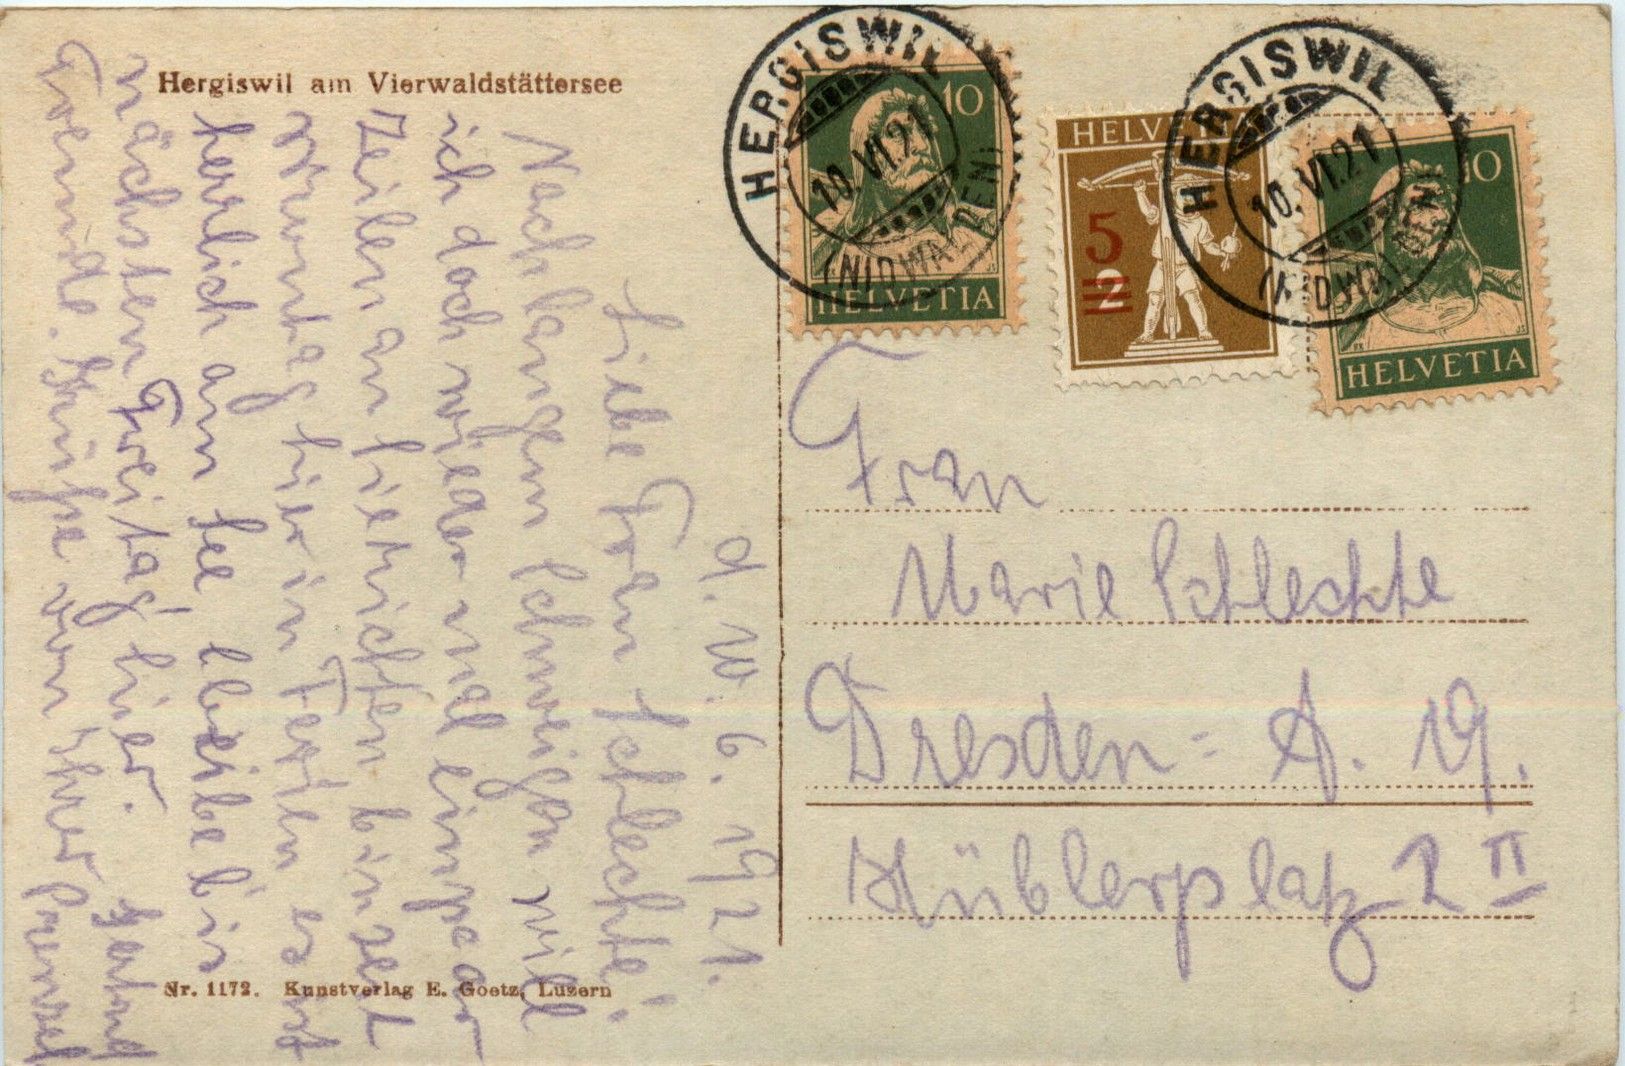 Hergiswil am Vierwaldstättersee
d. 10. 6. 1921.
Liebe Frau Schlechte!
Nach langem Schweigen will
ich doch wieder mal ein paar
Zeilen an Sie richten bin seit
Montag hier in Ferien es ist
herrlich am See bleibe bis
nächsten Freitag hier.
Grüße von Ihrer
Nr. 1172. Kunstverlag E. Goetz, Luzern
HERGISWIL
10. VI. 21
(NIDWALDEN)
10
HELVETIA
HELVETIA
5
2
HERGISWIL
10. VI. 21
(NIDWALDEN)
10
HELVETIA
Frau
Marie Schlechte
Dresden = A. 19.
Hüblerplatz II